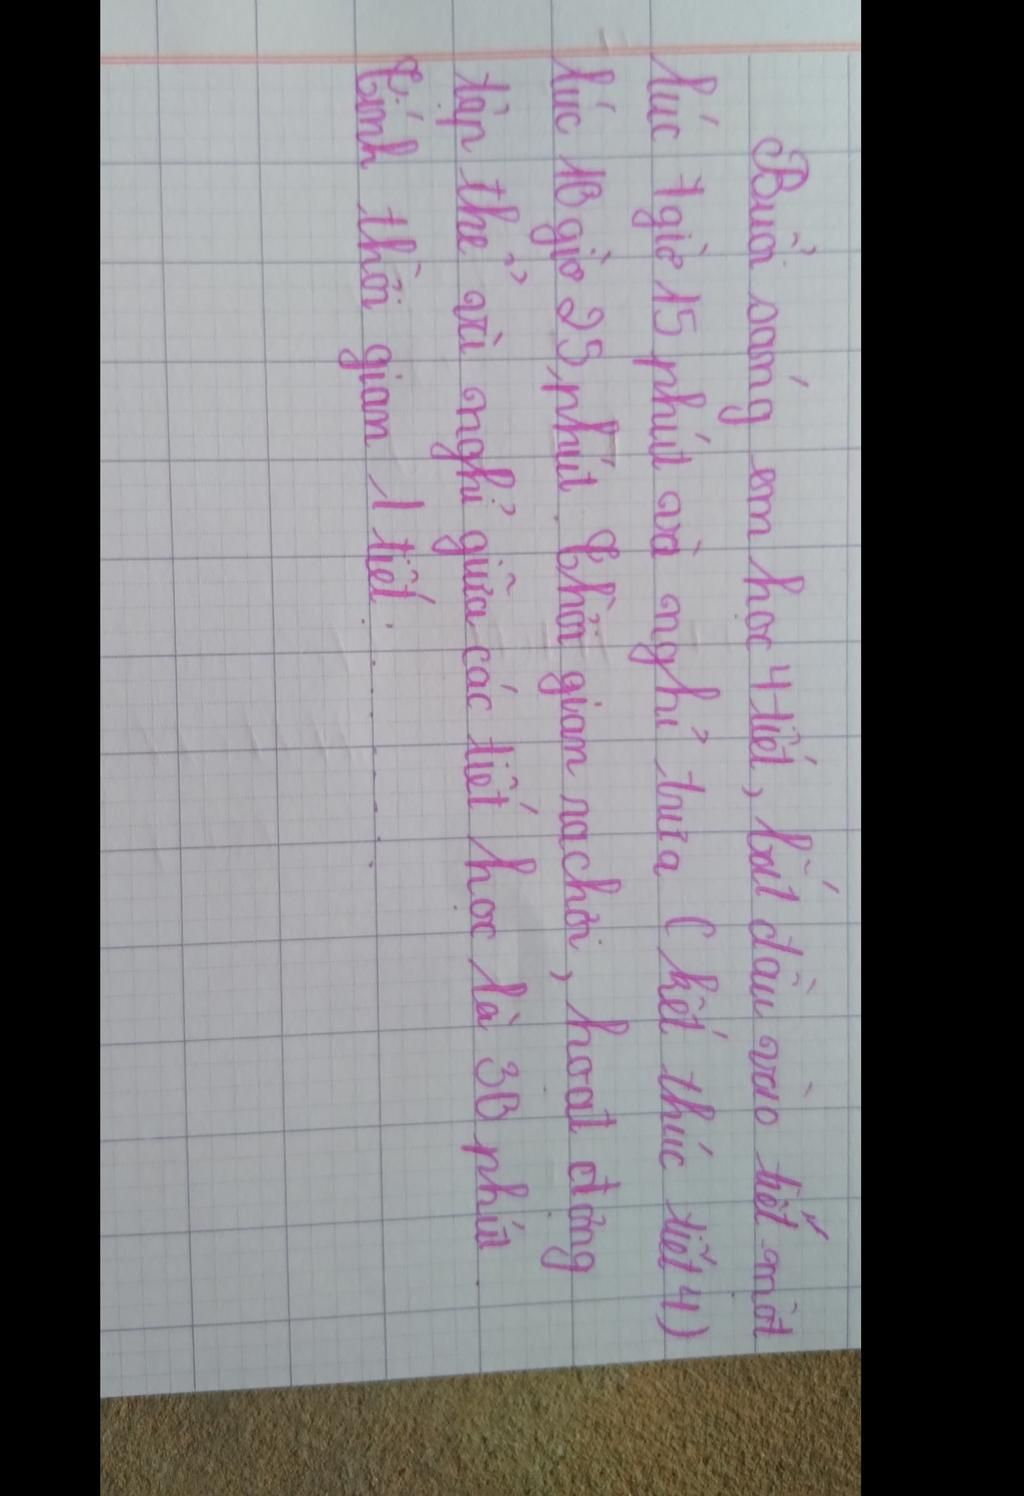 Buổi sáng em học 4 tiết, bắt đầu vào tiết một
lúc 7 giờ 15 phút và nghỉ trưa (kết thúc tiết 4)
lúc 10 giờ 25 phút. Thời gian ra chơi, hoạt động
tập thể và nghỉ giữa các tiết học là 30 phút.
Tính thời gian 1 tiết. . . . . . .